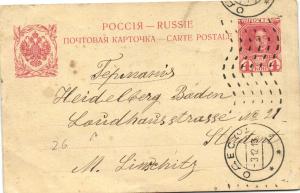 РОССІЯ – RUSSIE
ПОЧТОВАЯ КАРТОЧКА – CARTE POSTALE
Германія
Heidelberg Baden
Landhausstrasse № 21
Student
M. Linschitz
26
ОДЕССА